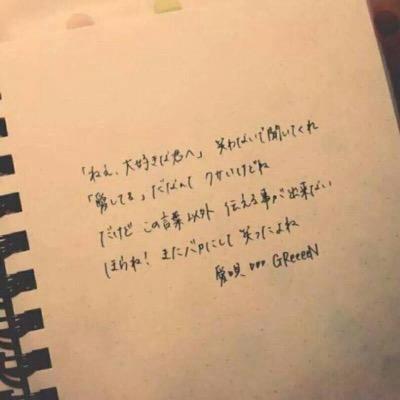 「ねぇ、大好きな君へ」 笑わないで聞いてくれ
「愛してる」だなんて クサいけどね
だけど この言葉以外 伝える事が出来ない
ほらね! またバカにして笑ったよね
愛唄 ... GReeeeN